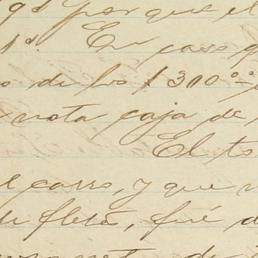 qs porque el
1º. En caso q
o de los $300.00
nota caja de
El to
l carro, y que n
de fleta, fué d